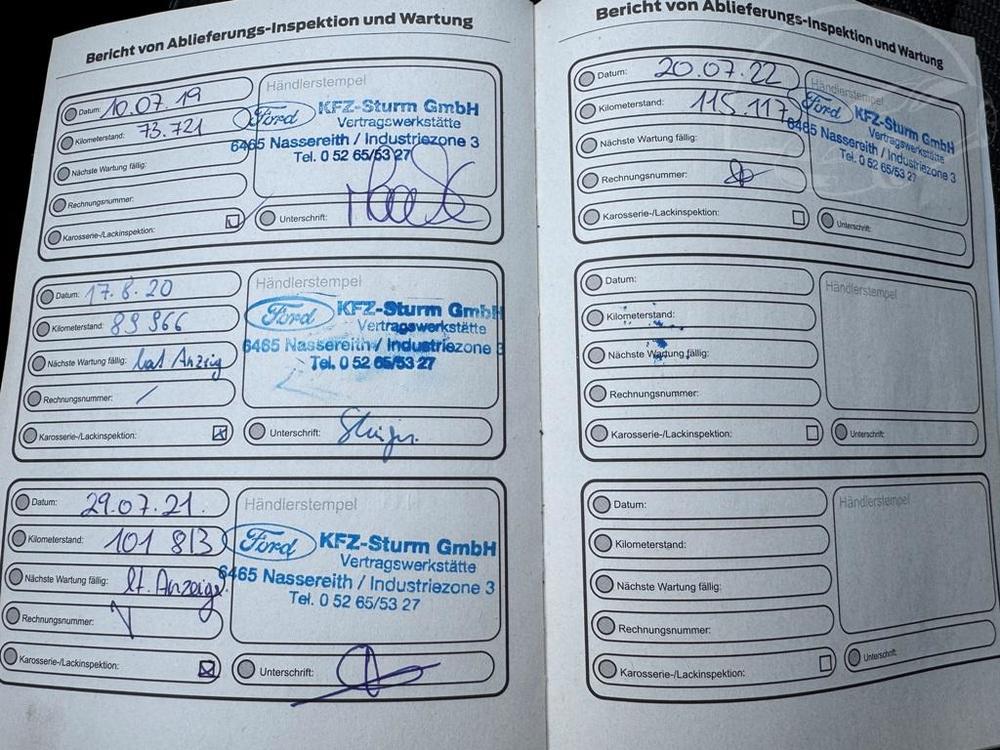 Bericht von Ablieferungs-Inspektion und Wartung
Datum: 10.07.19
Kilometerstand: 73.721
Nächste Wartung fällig:
Rechnungsnummer:
Karosserie-/Lackinspektion:
Händlerstempel
Ford KFZ-Sturm GmbH
Vertragswerkstätte
6465 Nassereith / Industriezone 3
Tel. 0 52 65/53 27
Unterschrift:
Datum: 17.8.20
Kilometerstand: 89 966
Nächste Wartung fällig: laut Anzeig
Rechnungsnummer: /
Karosserie-/Lackinspektion:
Händlerstempel
Ford KFZ-Sturm GmbH
Vertragswerkstätte
6465 Nassereith / Industriezone 3
Tel. 0 52 65/53 27
Unterschrift:
Datum: 29.07.21.
Kilometerstand: 101 813
Nächste Wartung fällig: lt. Anzeige
Rechnungsnummer:
Karosserie-/Lackinspektion:
Händlerstempel
Ford KFZ-Sturm GmbH
Vertragswerkstätte
6465 Nassereith / Industriezone 3
Tel. 0 52 65/53 27
Unterschrift:
Bericht von Ablieferungs-Inspektion und Wartung
Datum: 20.07.22
Kilometerstand: 115.117
Nächste Wartung fällig:
Rechnungsnummer:
Karosserie-/Lackinspektion:
Händlerstempel
Ford KFZ-Sturm GmbH
Vertragswerkstätte
6465 Nassereith / Industriezone 3
Tel. 0 52 65/53 27
Unterschrift:
Datum:
Kilometerstand:
Nächste Wartung fällig:
Rechnungsnummer:
Karosserie-/Lackinspektion:
Händlerstempel
Unterschrift:
Datum:
Kilometerstand:
Nächste Wartung fällig:
Rechnungsnummer:
Karosserie-/Lackinspektion:
Händlerstempel
Unterschrift: